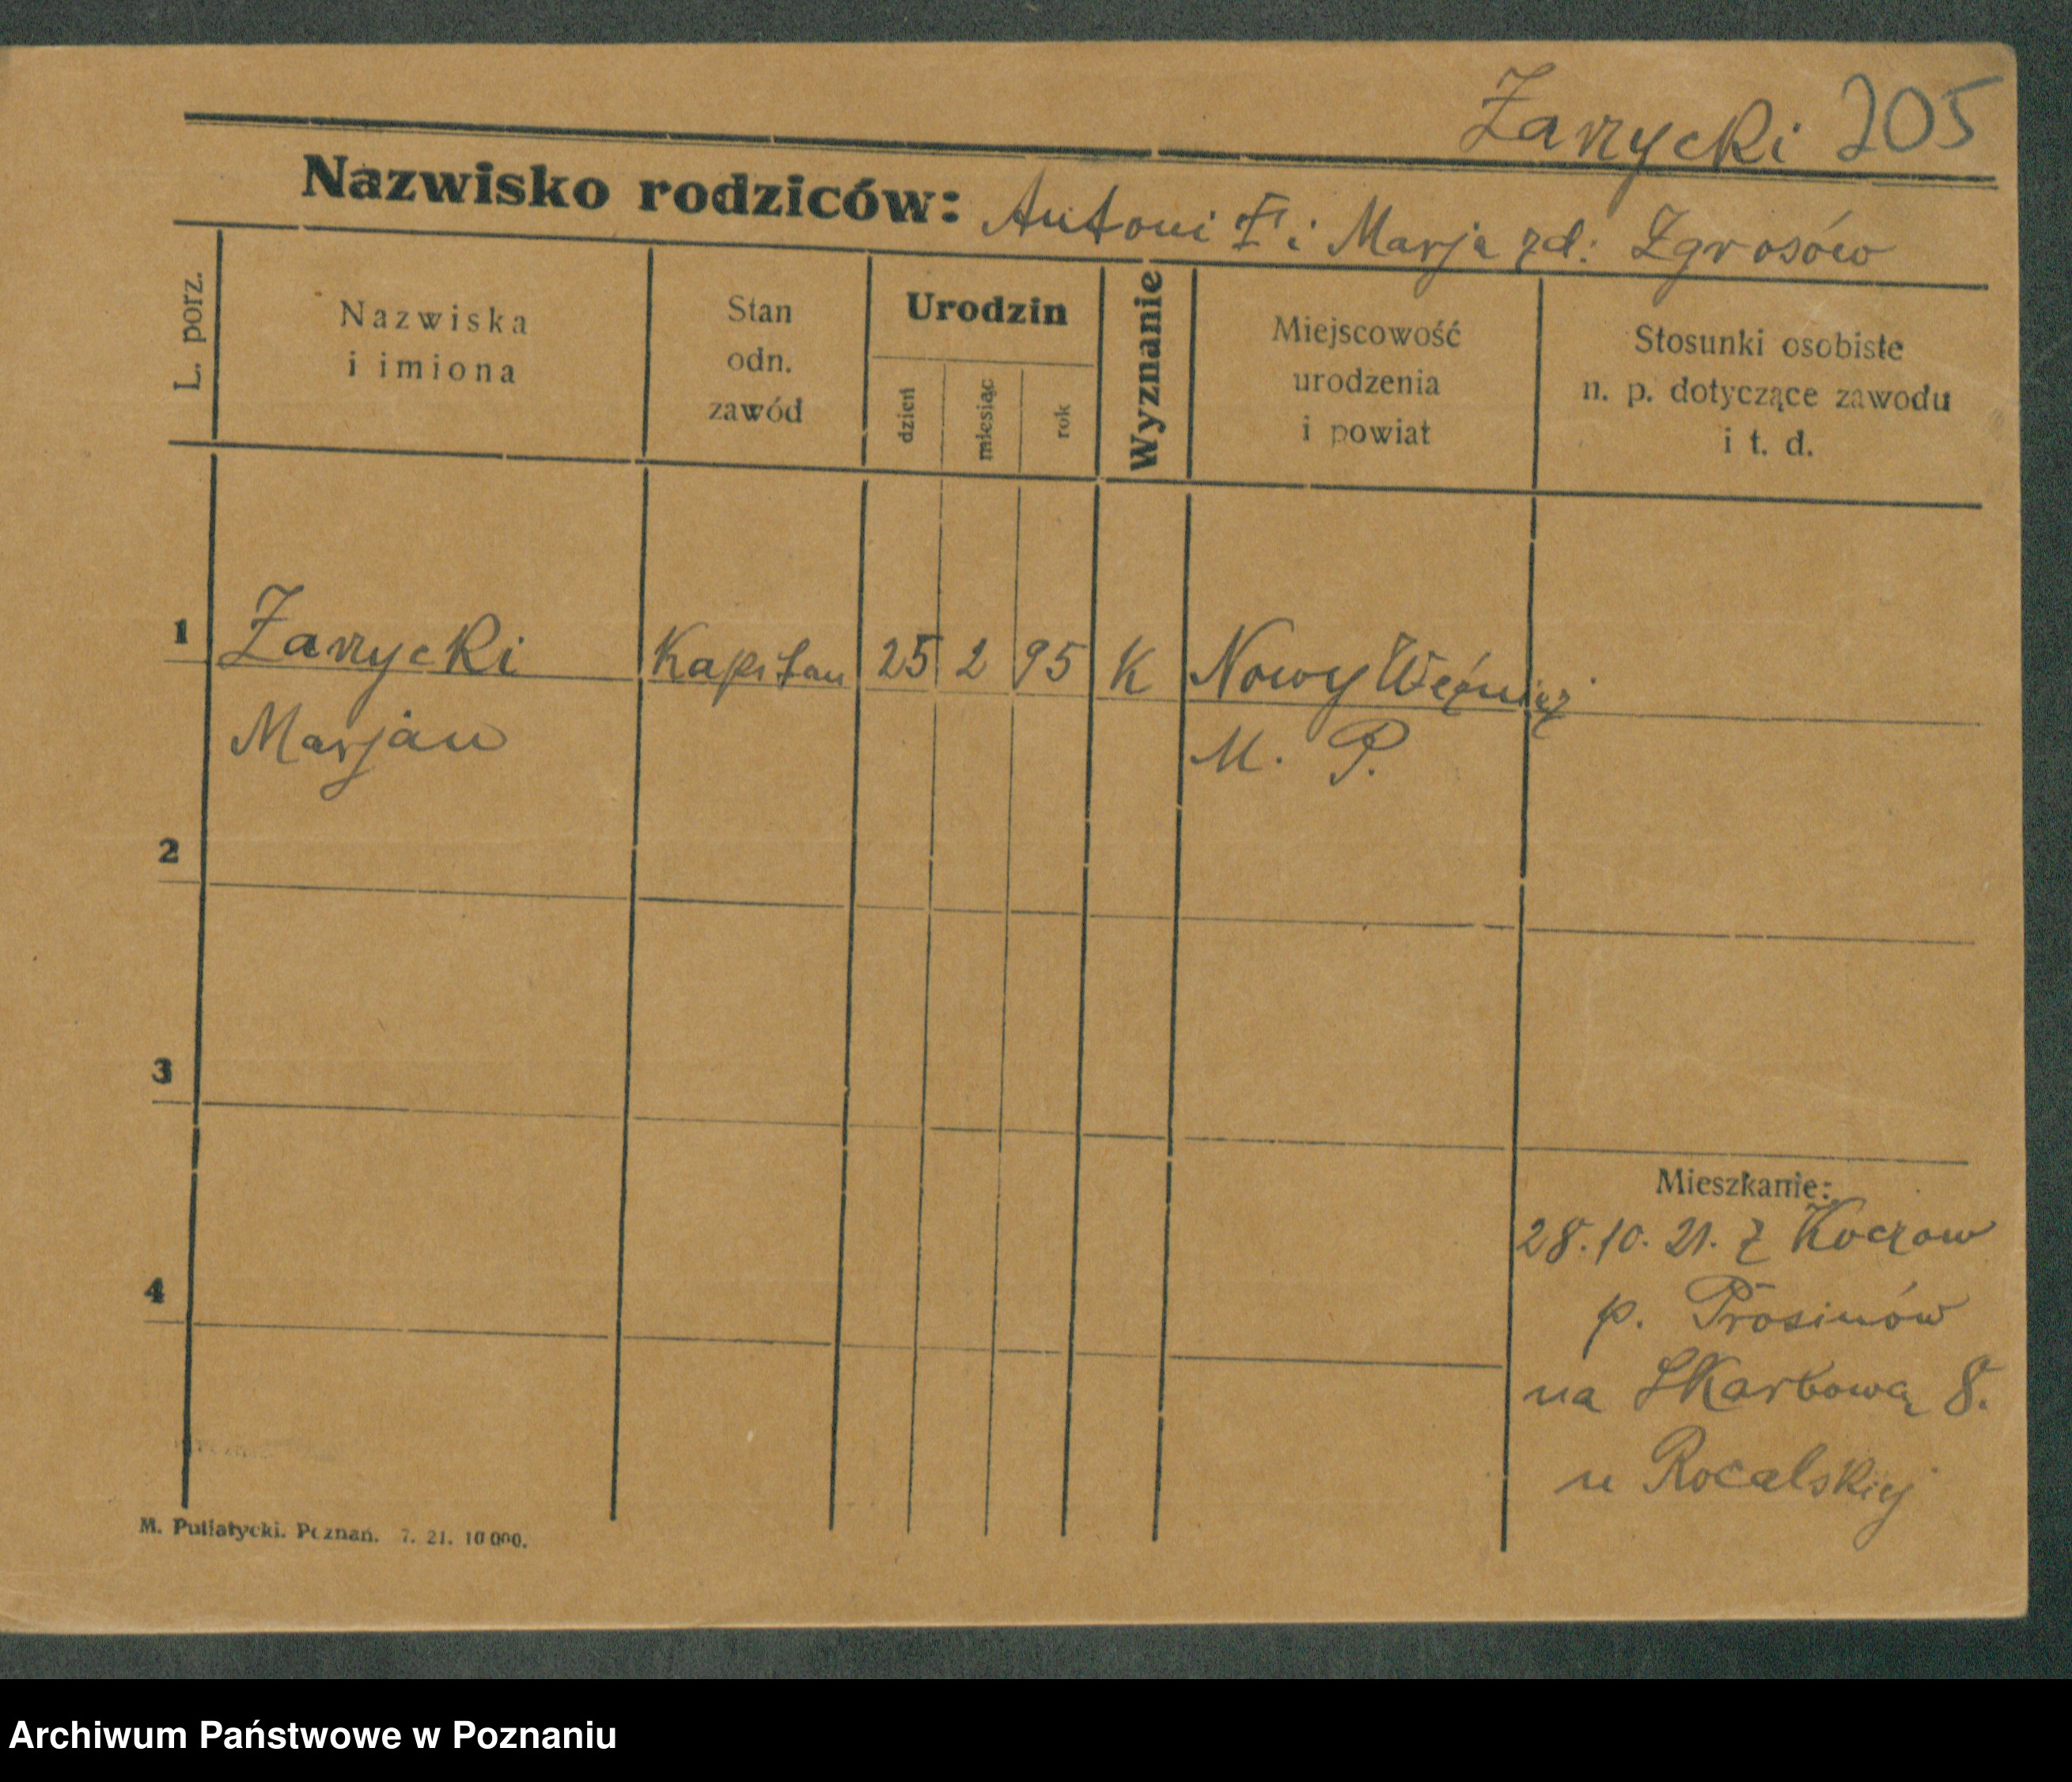 Zarzycki 205
Nazwisko rodziców: Antoni i Marja zd: Zgrosów
L. porz.
Nazwiska
i imiona
Stan
odn.
zawód
Urodzin
dzień
miesiąc
rok
Wyznanie
Miejscowość
urodzenia
i powiat
Stosunki osobiste
n. p. dotyczące zawodu
i t. d.
1 Zarzycki Kapitan 25 2 95 K Nowy
Marjan M. P.
2
3
4
Mieszkanie:
28.10.21. z Koczow
p. Prosinów
na Skarbową 8.
u Rocalskiej
M. Putiatycki. Poznań. 7. 21. 10 000.
Archiwum Państwowe w Poznaniu